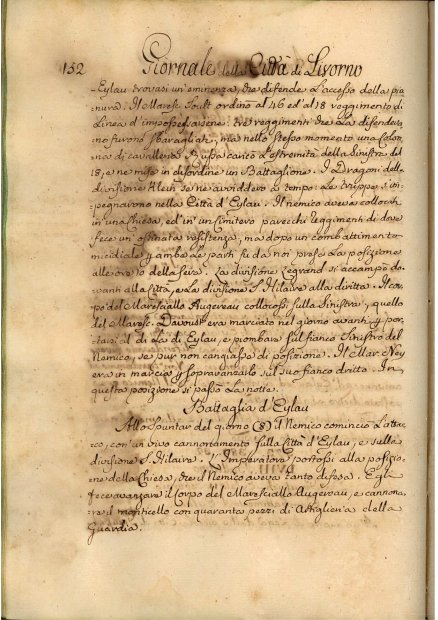 132 Giornale della Città di Livorno
Eylau trovasi un'eminenza, che difende l'accesso della pia-
nura. Il Maresc Soult ordinò al 46 ed al 18 reggimento di
Linea d'impossessarsene: tre reggimenti che la difendeva-
no furono sbaragliati, ma nello stesso momento una Colon-
na di cavalleria Russa caricò l'estremità della sinistra del
18, e ne mise in disordine un Battaglione. I Dragoni della
divisione Klein se ne avviddero a tempo: le truppe s'im-
pegnavono nella Città d'Eylau. Il nemico aveva collocati
in una Chiesa, ed in un cimitero parecchi reggimenti di dove
fece un'ostinata resistenza, ma dopo un combattimento
micidiale d'ambe le parti fu da noi presa la posizione
alle ore 10 della sera. La divisione Legrand si accampò da-
vanti alla Città, e la divisione S. Hilaire alla diritta. Il cor-
po del Maresciallo Augereau collocossi sulla sinistra, quello
del Maresc. Davoust era marciato nel giorno avanti per
portarsi al di là di Eylau, e piombare sul fianco sinistro del
Nemico, se pur non cangiasse di posizione. Il Mar. Ney
era in marcia per sopravanzarlo sul suo fianco dritto. In
questa posizione si passò la notte.
Battaglia d'Eylau
Allo spuntar del giorno (8) il Nemico cominciò l'attac-
co, con un vivo cannonamento sulla Città d'Eylau, e sulla
divisione S. Hilaire. L'Imperatore portossi alla posizio-
ne della Chiesa, che il Nemico aveva tanto difesa. Egli
fece avanzare il Corpo del Maresciallo Augereau, e cannona-
re il monticello con quaranta pezzi di Artiglieria della
Guardia.